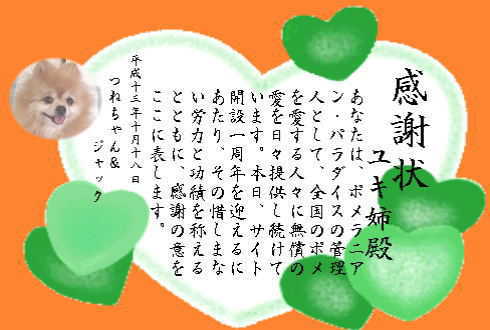 感謝状
ユキ姉殿
あなたは、ポメラニア
ン・パラダイスの管理
人として、全国のポメ
を愛する人々に無償の
愛を日々提供し続けて
います。本日、サイト
開設一周年を迎えるに
あたり、その惜しまな
い労力と功績を称える
とともに、感謝の意を
ここに表します。
平成十三年十月十八日
つねちゃん&
ジャック